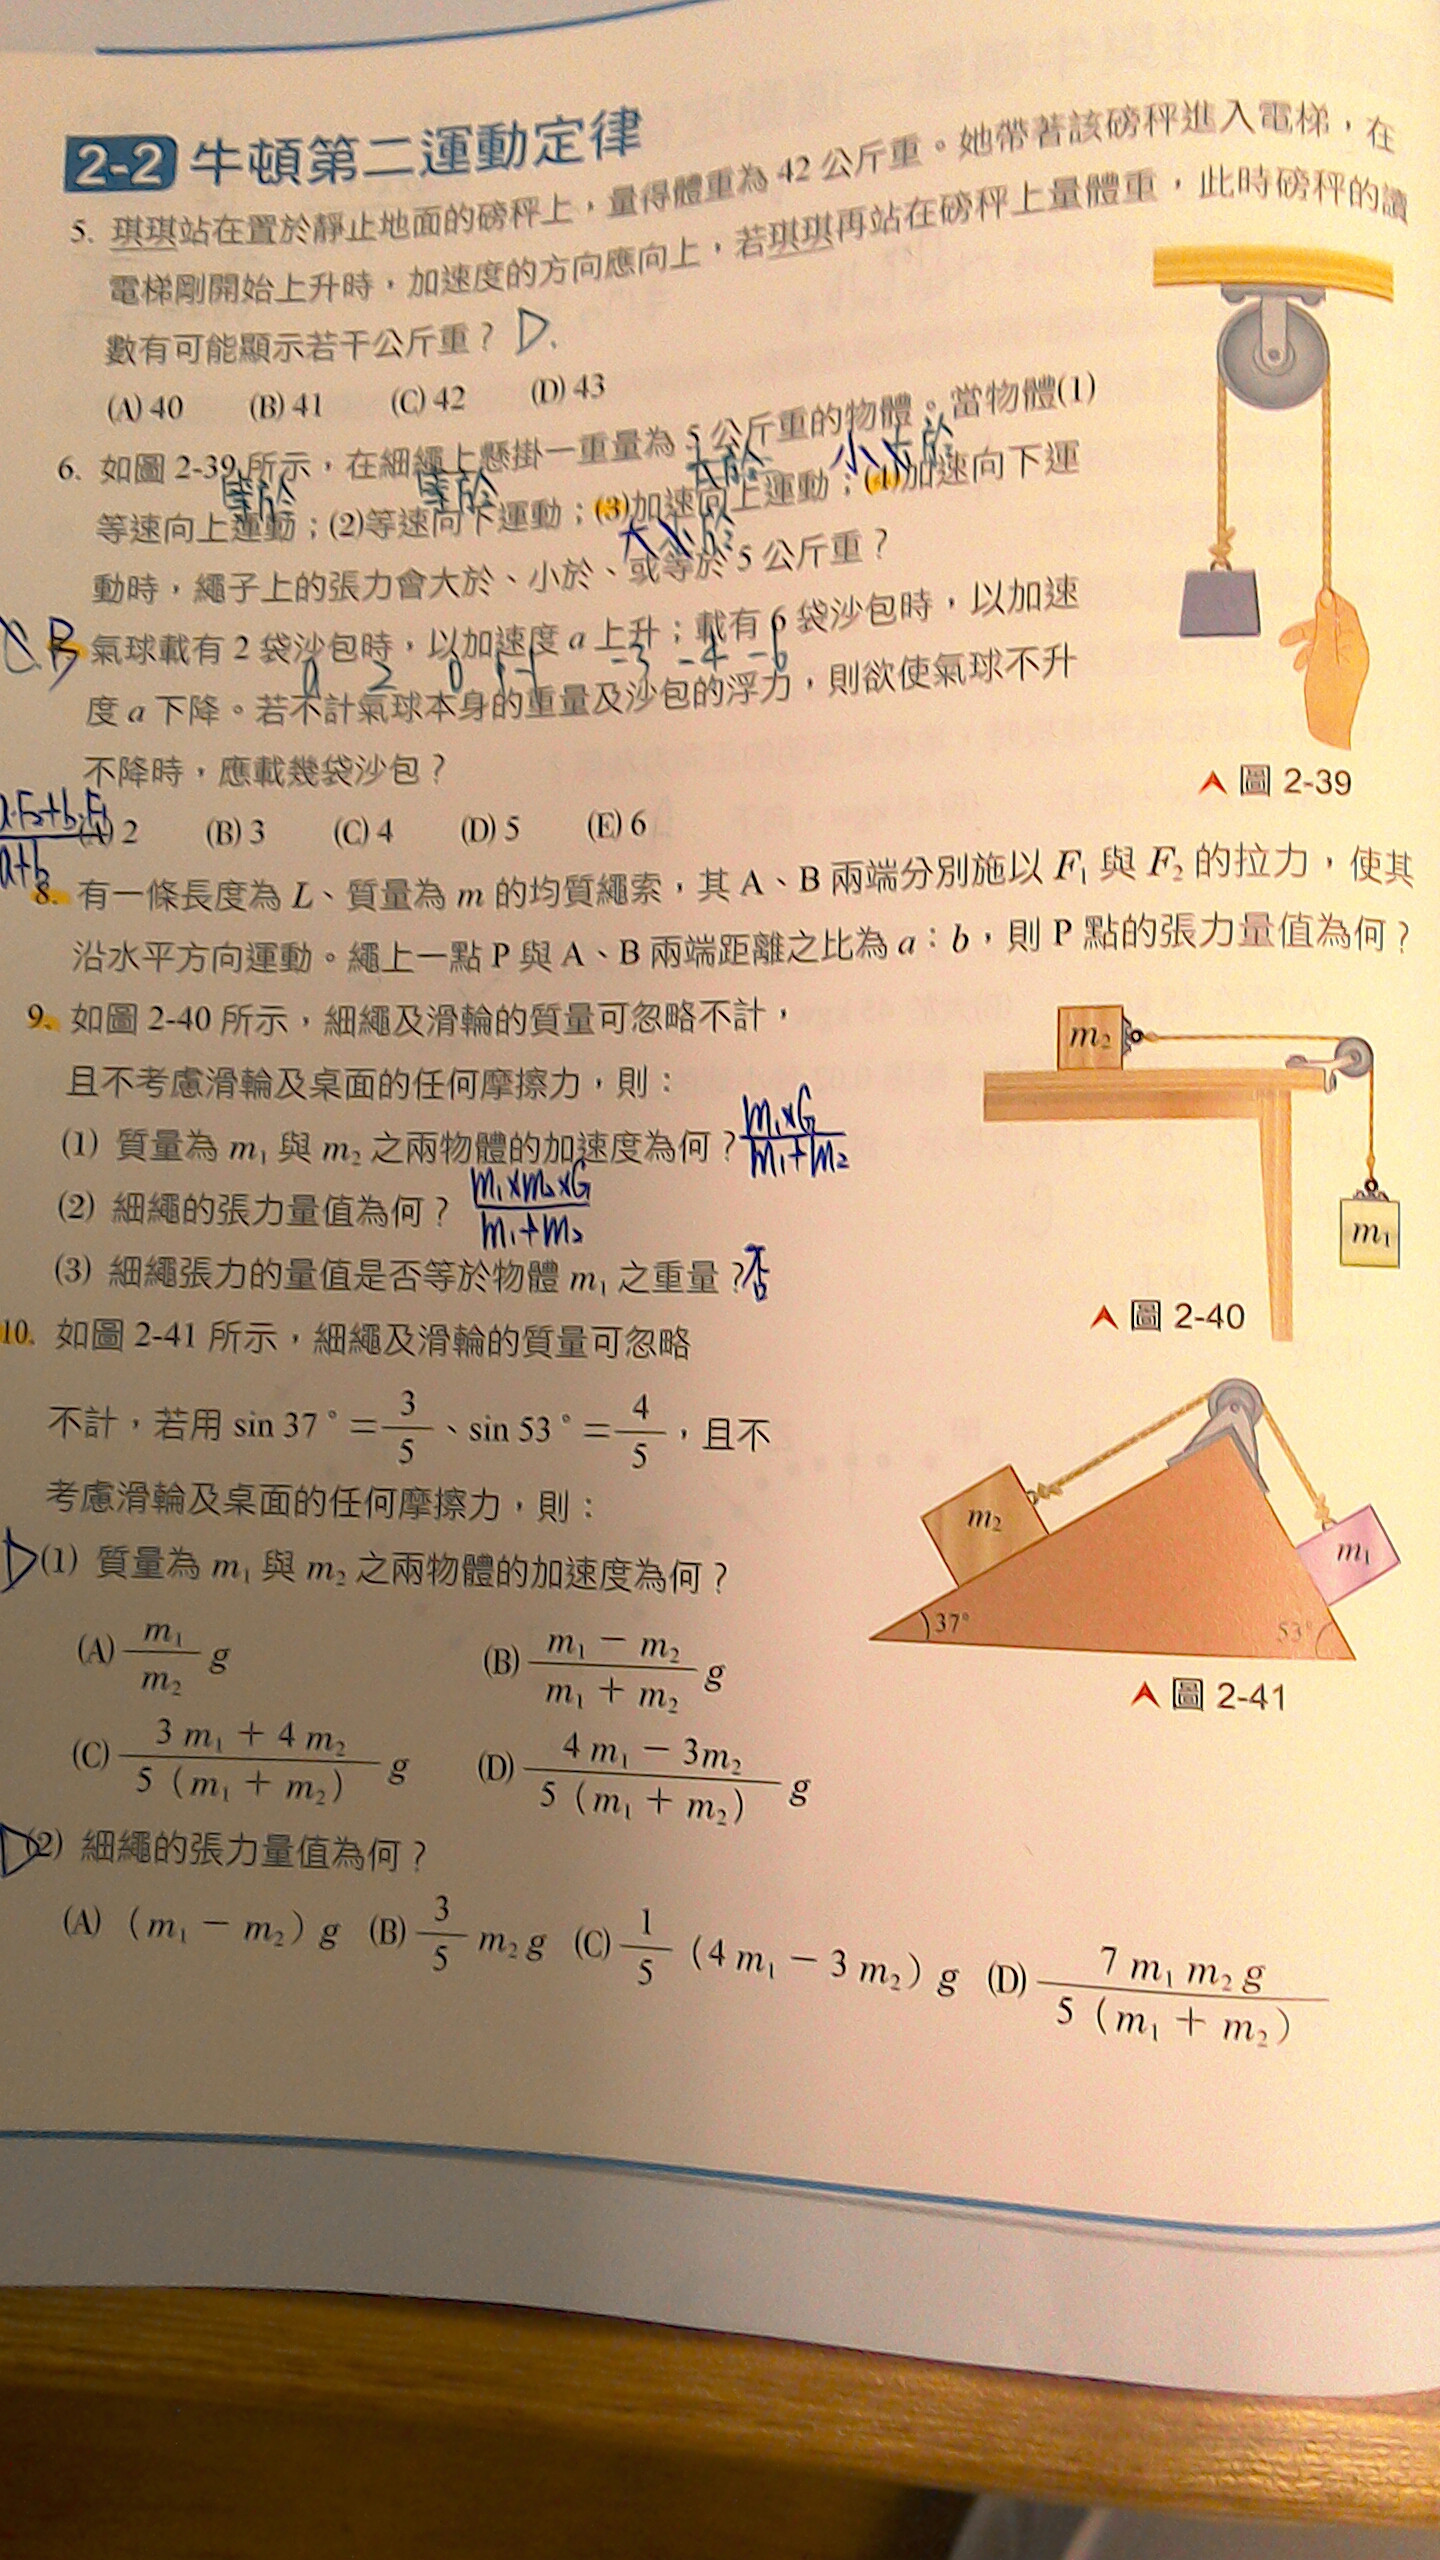 2-2 牛頓第二運動定律
5. 琪琪站在置於靜止地面的磅秤上，量得體重為 42 公斤重。她帶著該磅秤進入電梯，在
電梯剛開始上升時，加速度的方向應向上，若琪琪再站在磅秤上量體重，此時磅秤的讀
數有可能顯示若干公斤重？ D.
(A) 40 (B) 41 (C) 42 (D) 43
6. 如圖 2-39 所示，在細繩上懸掛一重量為 5 公斤重的物體。當物體(1)
等於 等於 大於 小於
等速向上運動；(2)等速向下運動；(3)加速向上運動；(4)加速向下運
動時，繩子上的張力會大於、小於、或等於 5 公斤重？
B 氣球載有 2 袋沙包時，以加速度 a 上升；載有 6 袋沙包時，以加速
度 a 下降。若不計氣球本身的重量及沙包的浮力，則欲使氣球不升
不降時，應載幾袋沙包？
(A) 2 (B) 3 (C) 4 (D) 5 (E) 6
圖 2-39
a·F₂+b·F₁
a+b
8. 有一條長度為 L、質量為 m 的均質繩索，其 A、B 兩端分別施以 F₁ 與 F₂ 的拉力，使其
沿水平方向運動。繩上一點 P 與 A、B 兩端距離之比為 a：b，則 P 點的張力量值為何？
9. 如圖 2-40 所示，細繩及滑輪的質量可忽略不計，
且不考慮滑輪及桌面的任何摩擦力，則：
(1) 質量為 m₁ 與 m₂ 之兩物體的加速度為何？ m₁×G / m₁+m₂
(2) 細繩的張力量值為何？ m₁×m₂×G / m₁+m₂
(3) 細繩張力的量值是否等於物體 m₁ 之重量？ 否
m₂
m₁
圖 2-40
10. 如圖 2-41 所示，細繩及滑輪的質量可忽略
不計，若用 sin 37°＝3/5、sin 53°＝4/5，且不
考慮滑輪及桌面的任何摩擦力，則：
D (1) 質量為 m₁ 與 m₂ 之兩物體的加速度為何？
(A) m₁/m₂ g (B) m₁－m₂/m₁＋m₂ g
(C) 3 m₁＋4 m₂/5（m₁＋m₂） g (D) 4 m₁－3m₂/5（m₁＋m₂） g
m₂
m₁
37°
53°
圖 2-41
D (2) 細繩的張力量值為何？
(A)（m₁－m₂）g (B) 3/5 m₂ g (C) 1/5（4 m₁－3 m₂）g (D) 7 m₁ m₂ g/5（m₁＋m₂）